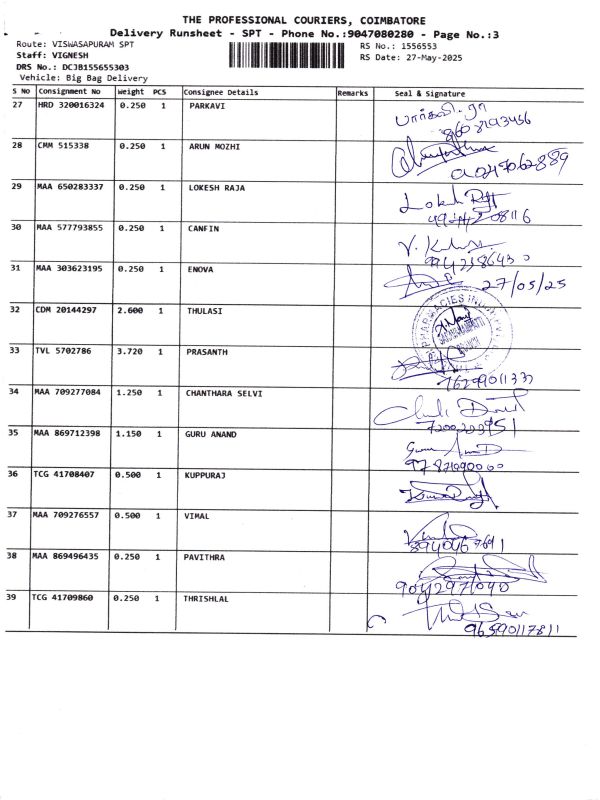 THE PROFESSIONAL COURIERS, COIMBATORE
Delivery Runsheet - SPT - Phone No.:9047080280 - Page No.:3
Route: VISWASAPURAM SPT RS No.: 1556553
Staff: VIGNESH RS Date: 27-May-2025
DRS No.: DCJB155655303
Vehicle: Big Bag Delivery
S No Consignment No Weight PCS Consignee Details Remarks Seal & Signature
27 HRD 320016324 0.250 1 PARKAVI பார்கவி.ரா
8608193456
28 CMM 515338 0.250 1 ARUN MOZHI
29 MAA 650283337 0.250 1 LOKESH RAJA Lokesh
30 MAA 577793855 0.250 1 CANFIN
31 MAA 303623195 0.250 1 ENOVA 27/05/25
32 CDM 20144297 2.600 1 THULASI
33 TVL 5702786 3.720 1 PRASANTH
34 MAA 709277084 1.250 1 CHANTHARA SELVI
35 MAA 869712398 1.150 1 GURU ANAND
36 TCG 41708407 0.500 1 KUPPURAJ
37 MAA 709276557 0.500 1 VIMAL
38 MAA 869496435 0.250 1 PAVITHRA
9042971040
39 TCG 41709860 0.250 1 THRISHLAL
9659011781